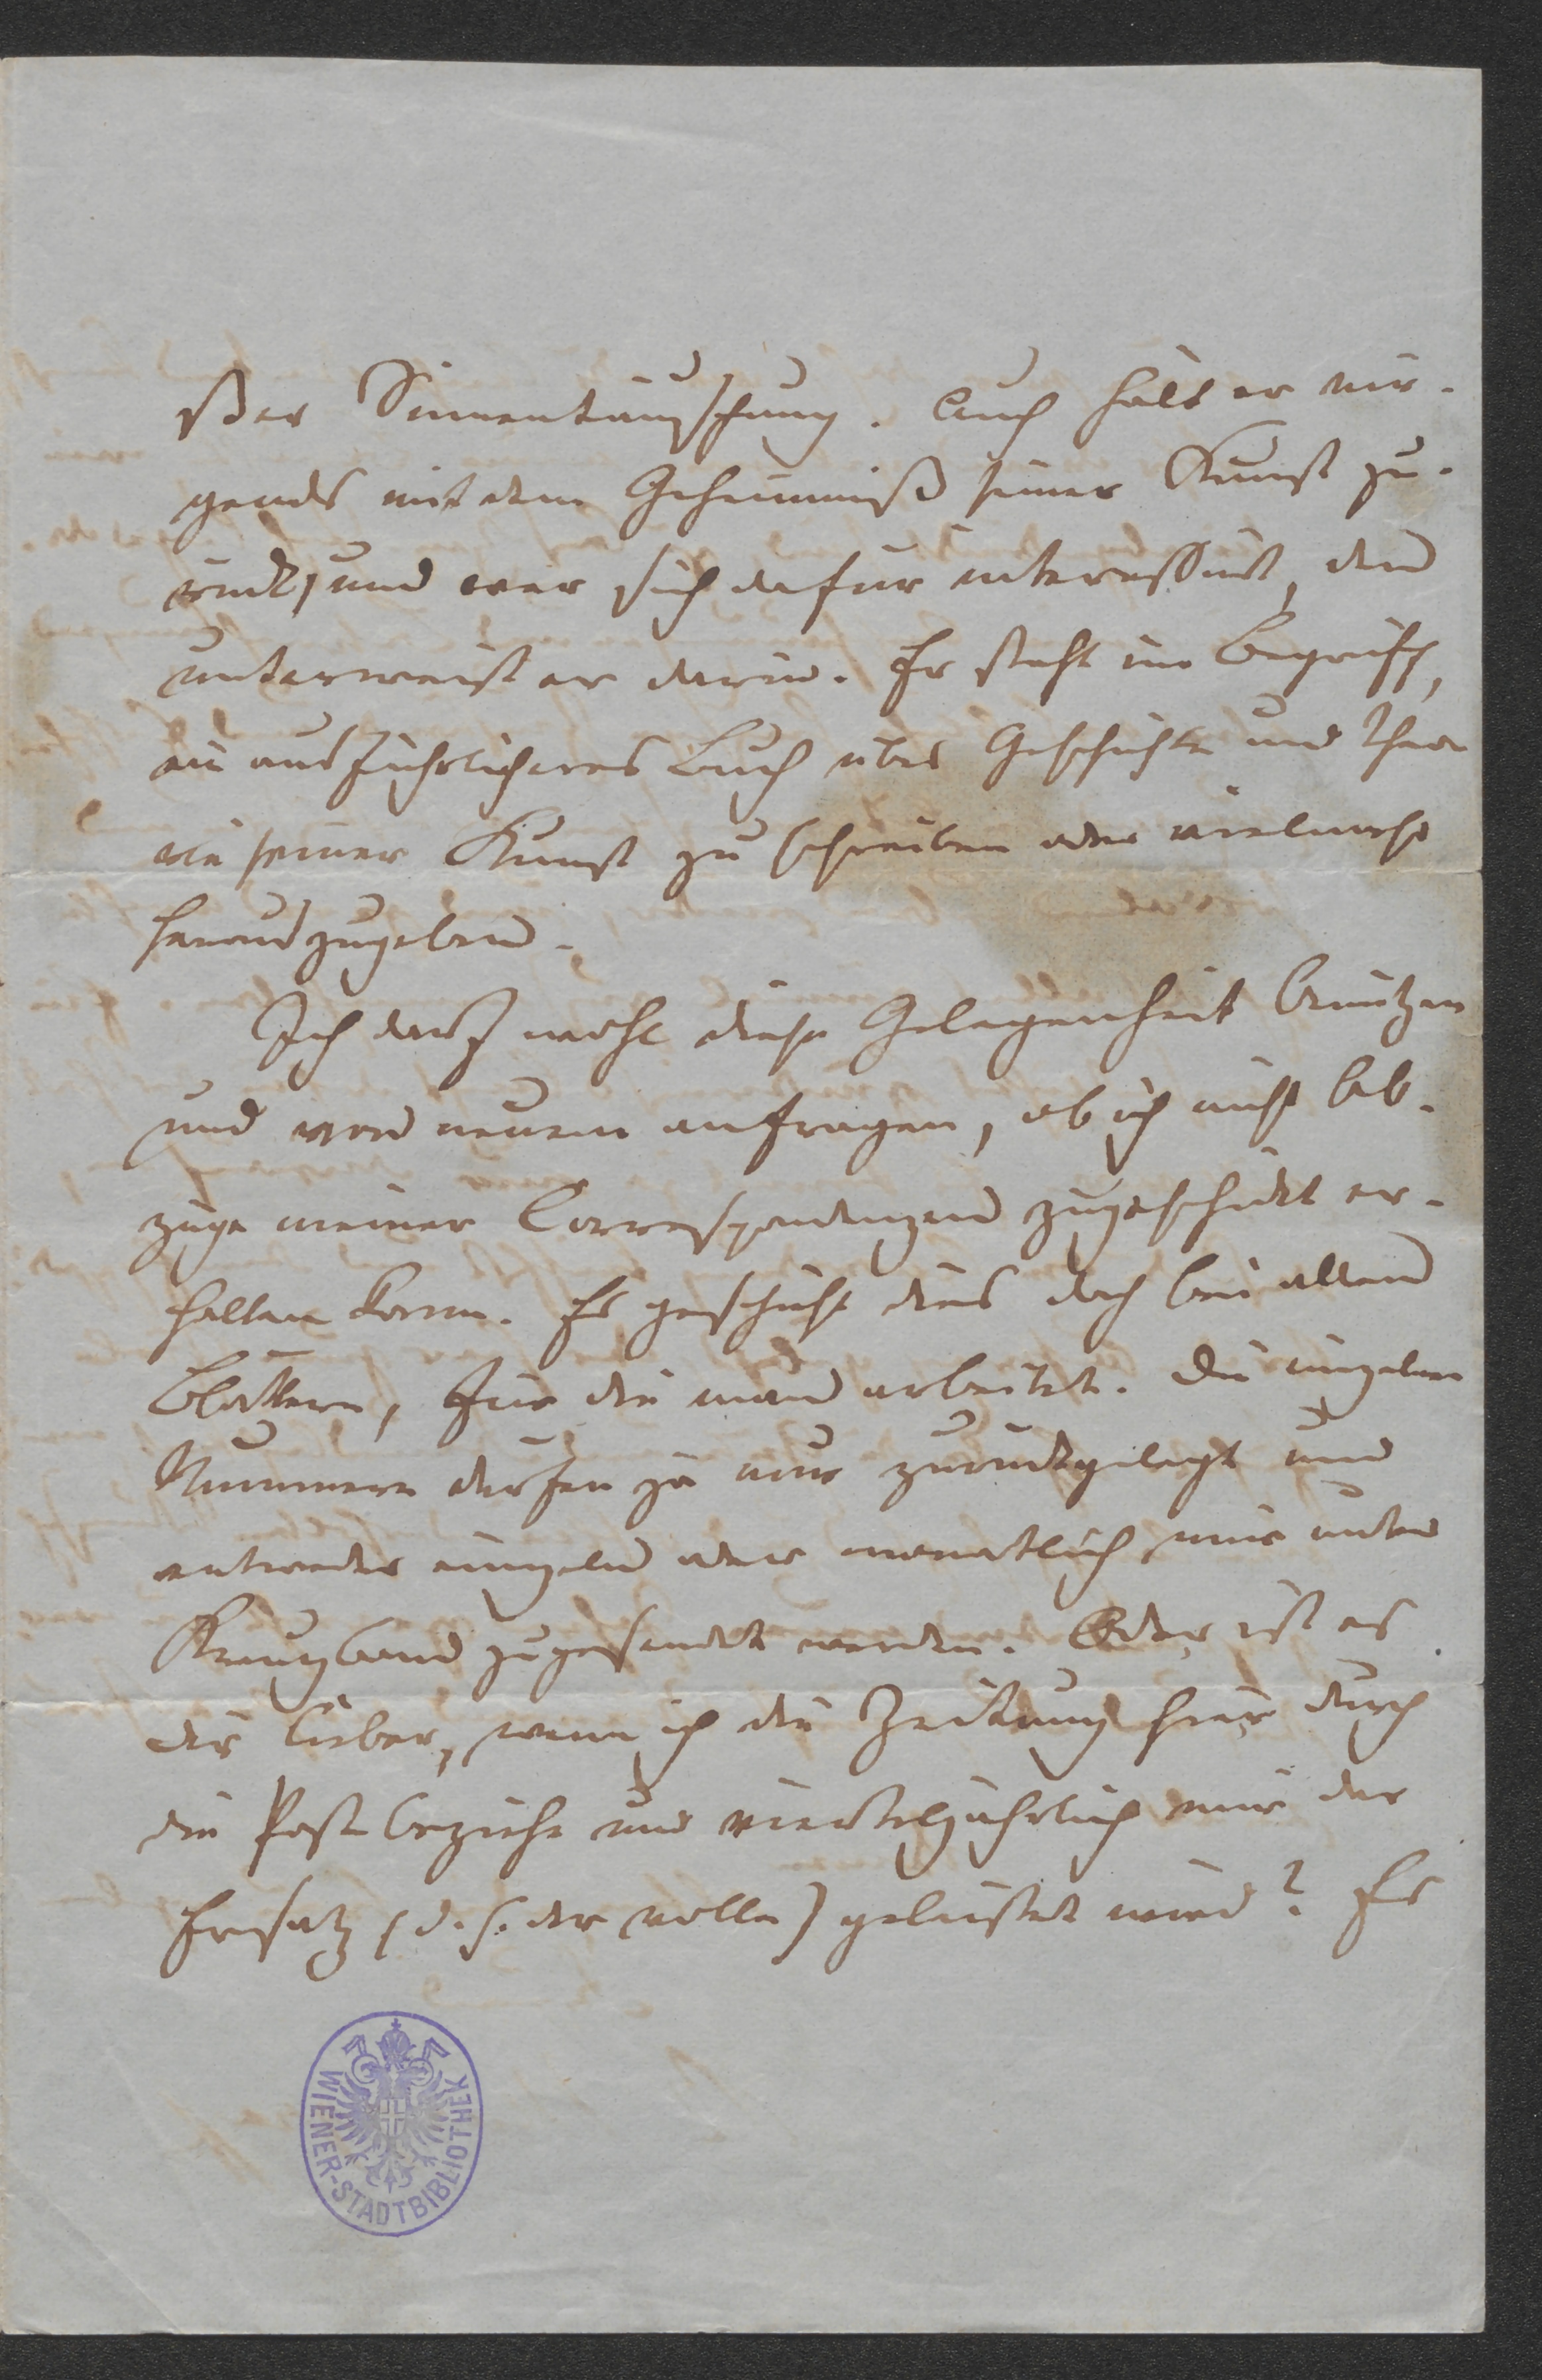 ßer Sinnentäuschung. Auch hält er nir-
gends mit dem Geheimniß seiner Kunst zu-
rück, und wer sich dafür interessirt, den
unterweist er darin. Er steht im Begriff,
ein ausführlicheres Buch über Geschichte und Theo
rie seiner Kunst zu schreiben oder vielmehr
herauszugeben.
Ich darf wohl diese Gelegenheit benützen
und von neuem anfragen, ob ich nicht Ab-
züge meiner Correspondenzen zugeschickt er-
halten kann. Es geschieht dies doch bei allen
Blättern, für die man arbeitet. Die einzelnen
Nummern dürfen ja nur zurückgelegt und
entweder einzeln oder monatlich mir unter
Kreuzband zugesendet werden. Oder ist es
dir lieber, wenn ich die Zeitung hier durch
die Post beziehe und vierteljährlich mir der
Ersatz (d. h. der volle) geleistet wird? Es
WIENER-STADTBIBLIOTHEK